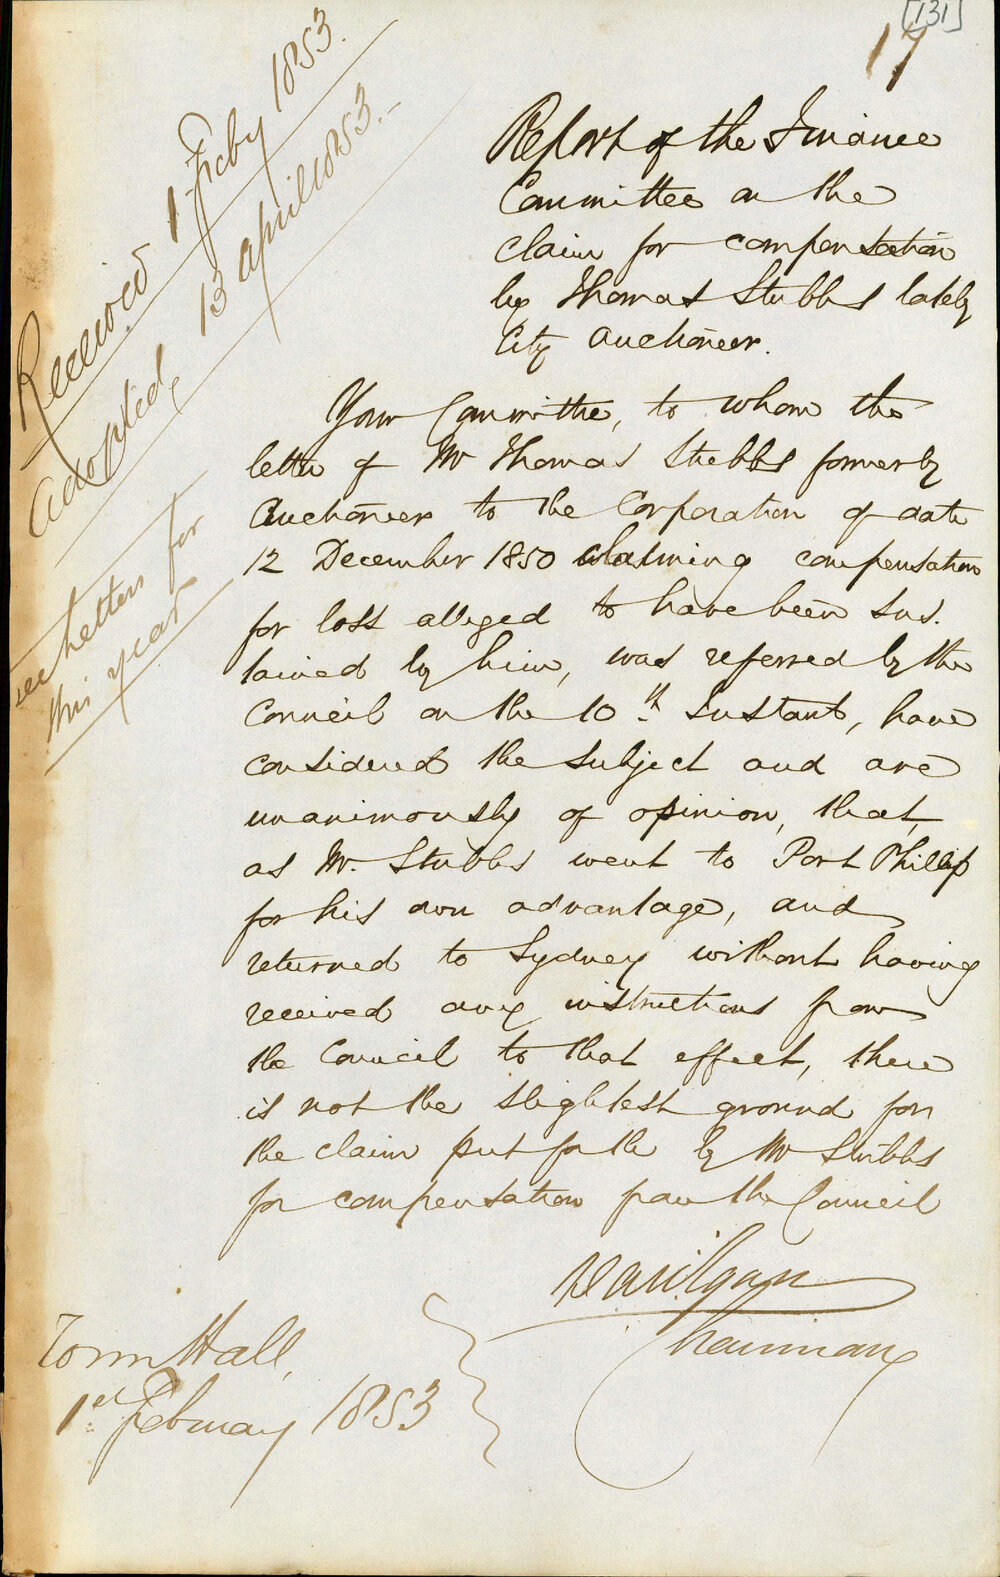 [131]
17
Received 1 Feby 1853.
Adopted, 13 April 1853.-
see Letters for
this year
Report of the Finance
Committee on the
claim for compensation
by Thomas Stubbs lately
City Auctioneer.
Your Committee, to whom the
letter of Mr Thomas Stubbs formerly
Auctioneer to the Corporation of date
12 December 1850 claiming compensation
for loss alleged to have been sus.
tained by him, was referred by the
Council on the 10th Instant, have
considered the subject and are
unanimously of opinion, that,
as Mr. Stubbs went to Port Phillip
for his own advantage, and
returned to Sydney without having
received any instructions from
the Council to that effect, there
is not the slightest ground for
the claim put forth by Mr Stubbs
for compensation from the Council
Chairman
Town Hall,
1st February 1853